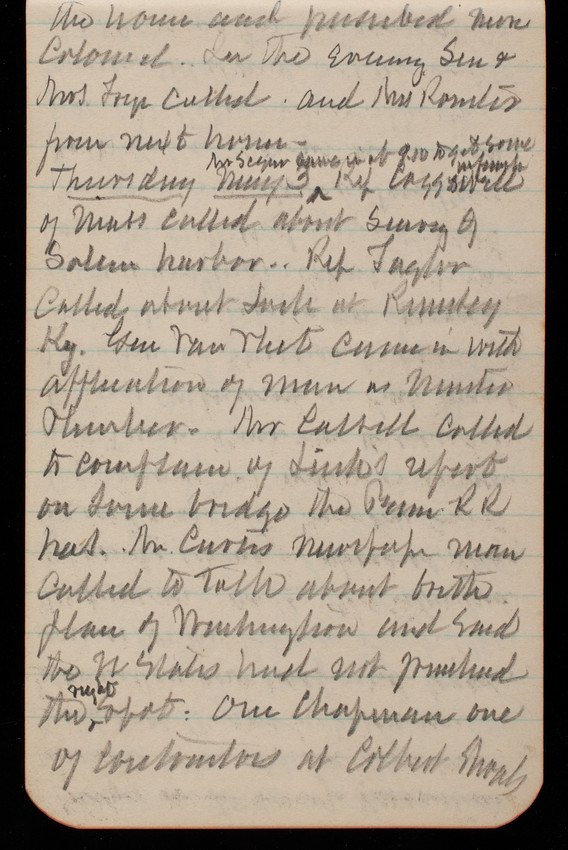 the House and passed more
Colonel. In the evening Sen &
Mrs Frye called. and Mrs Romero
from next house-
Mr Segur came in at 9.00 to get some
Thursday May 3 Rep Coggswell
of Mass called about Survey of
Salem harbor.. Rep Taylor
called about Lock at Rumsey
Ky. Gen Van Vliet came in with
application of man as Master
Plumber. Mr Cassell called
to complain of Link's report
on some bridge the Penn. R R
has. Mr Curtis newspaper man
called to talk about birth
plan of Washington and said
the U States had not purchased
the right spot: One Chapman one
of contractors at Colbert Shoals